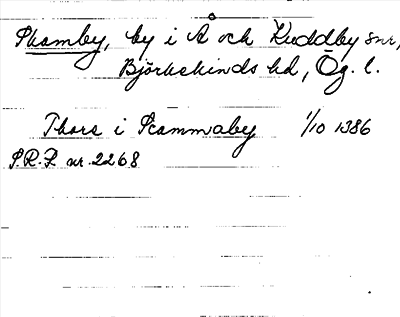 Skamby, by i Å och Kuddby snr,
Björkekinds hd, Ög. l.
Thors i Scammaby 1/10 1386
S.R.P. nr. 2268